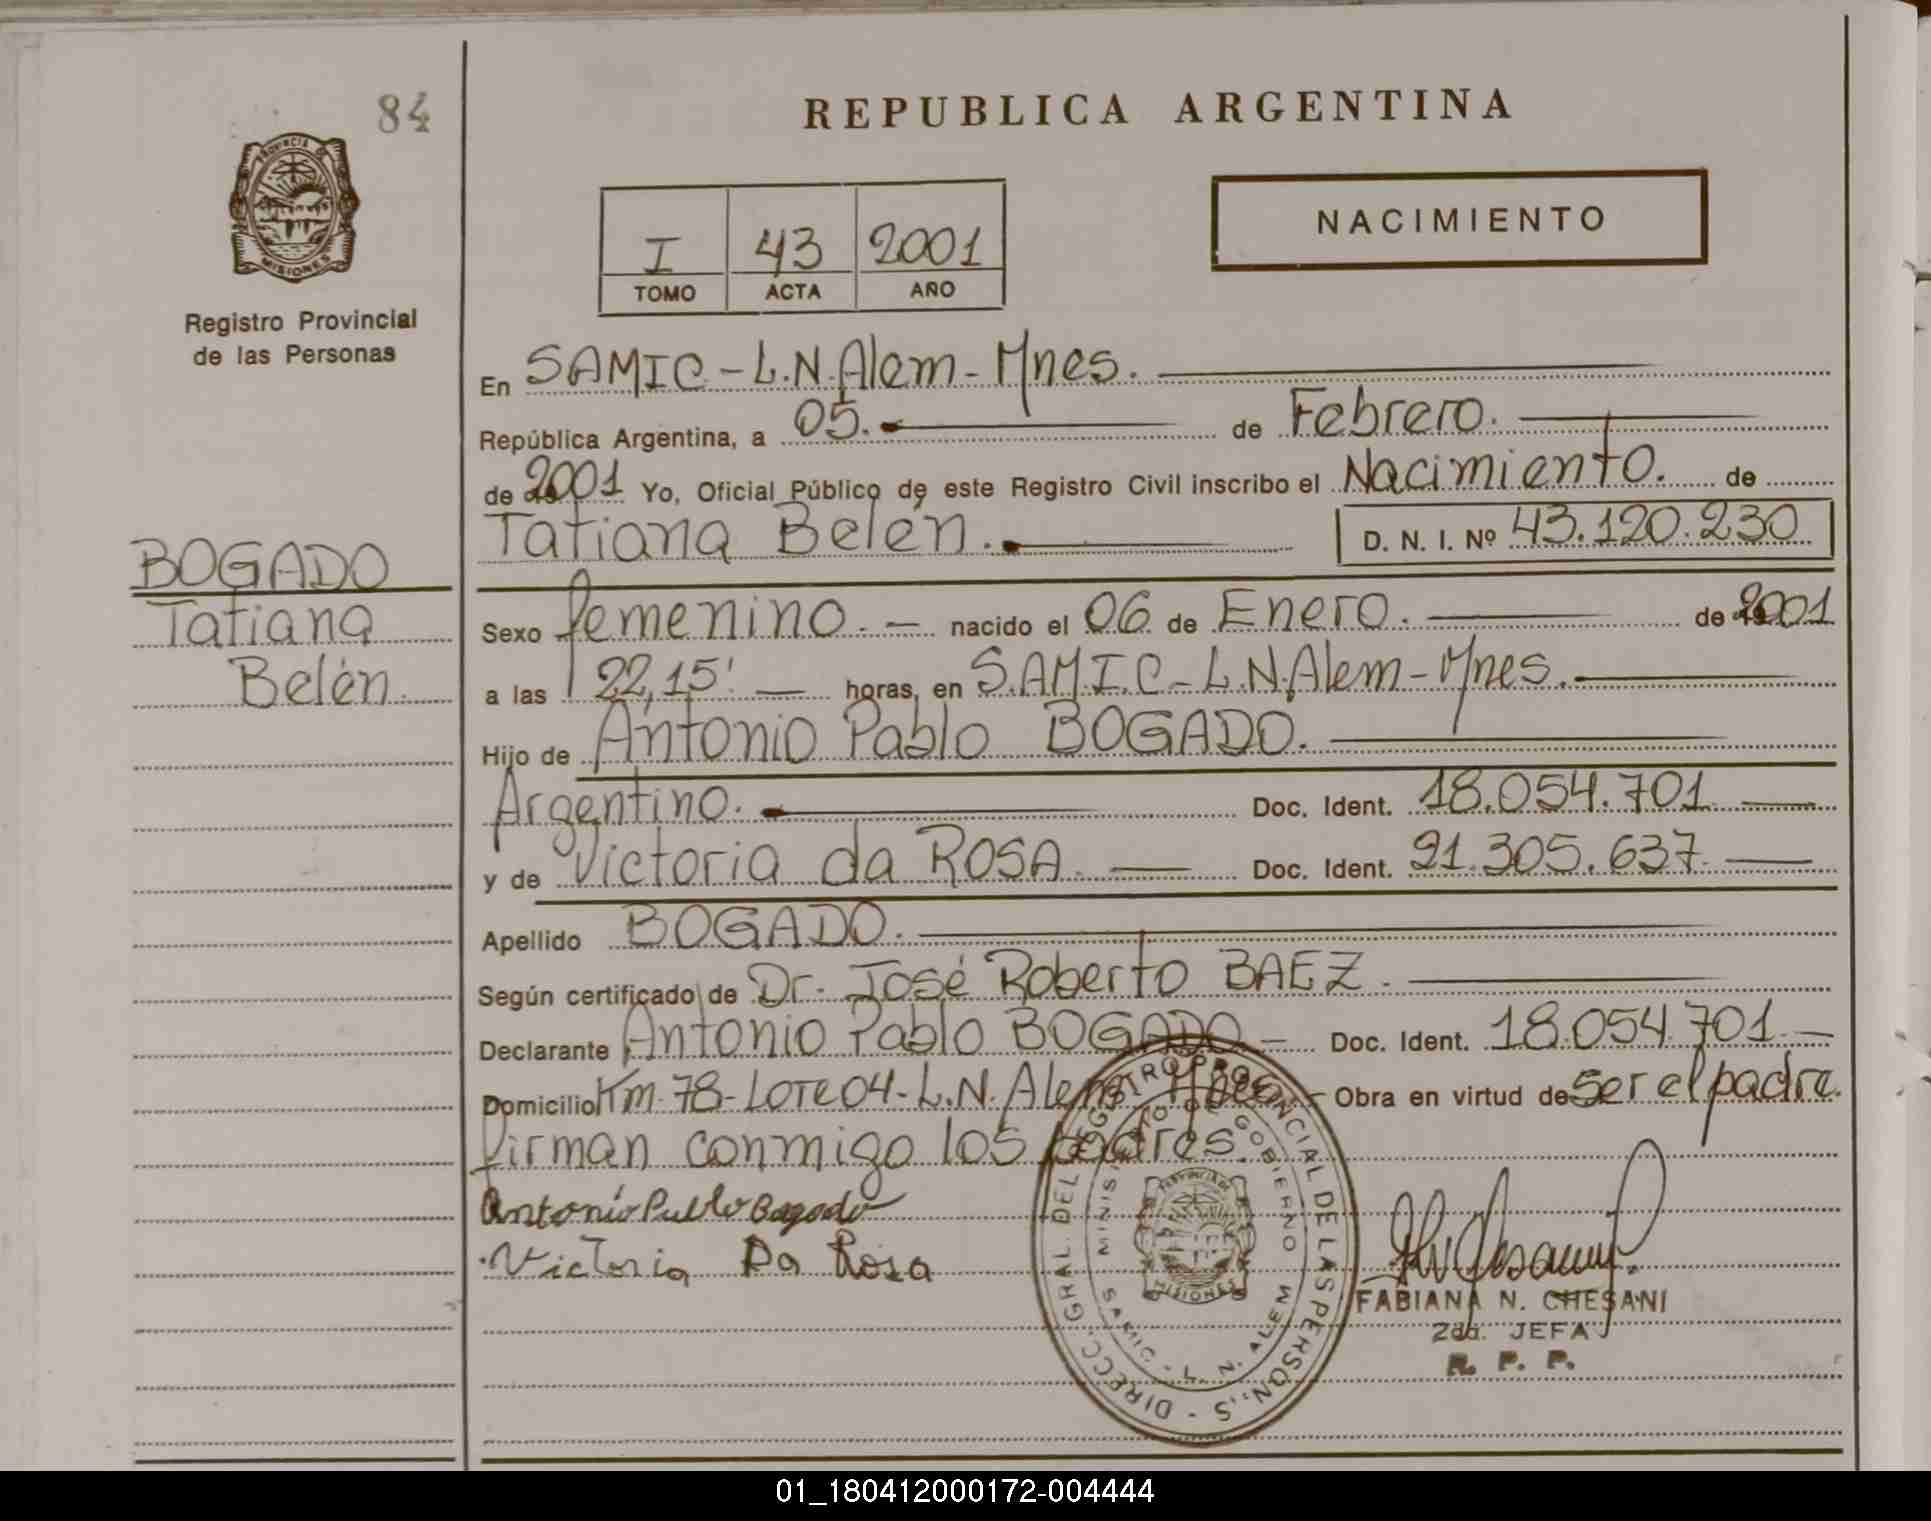 84
PROVINCIA DE
MISIONES
Registro Provincial
de las Personas
BOGADO
Tatiana
Belén.
REPUBLICA ARGENTINA
NACIMIENTO
I 43 2001
TOMO ACTA AÑO
En SAMIC-L.N.Alem-Mnes.
República Argentina, a 05. de Febrero.
de 2001 Yo, Oficial Público de este Registro Civil inscribo el Nacimiento. de
Tatiana Belén. D. N. I. Nº 43.120.230
Sexo femenino. - nacido el 06 de Enero. de 2001
a las 22,15' horas, en S.A.M.I.C-L.N.Alem-Mnes.
Hijo de Antonio Pablo BOGADO.
Argentino. Doc. Ident. 18.054.701
y de Victoria da ROSA. Doc. Ident. 21.305.637
Apellido BOGADO.
Según certificado de Dr. José Roberto BAEZ.
Declarante Antonio Pablo BOGADO Doc. Ident. 18.054.701
Domicilio Km-78-Lote 04-L.N.Alem Mnes Obra en virtud de ser el padre.
firman conmigo los padres.
Antonio Pablo Bogado
Victoria Da Rosa
DIRECC. GRAL. DEL REGISTRO PROVINCIAL DE LAS PERSON.S
MINISTERIO DE GOBIERNO
SAMIC - L. N. ALEM
MISIONES
FABIANA N. CHESANI
2da. JEFA
R. P. P.
01_180412000172-004444